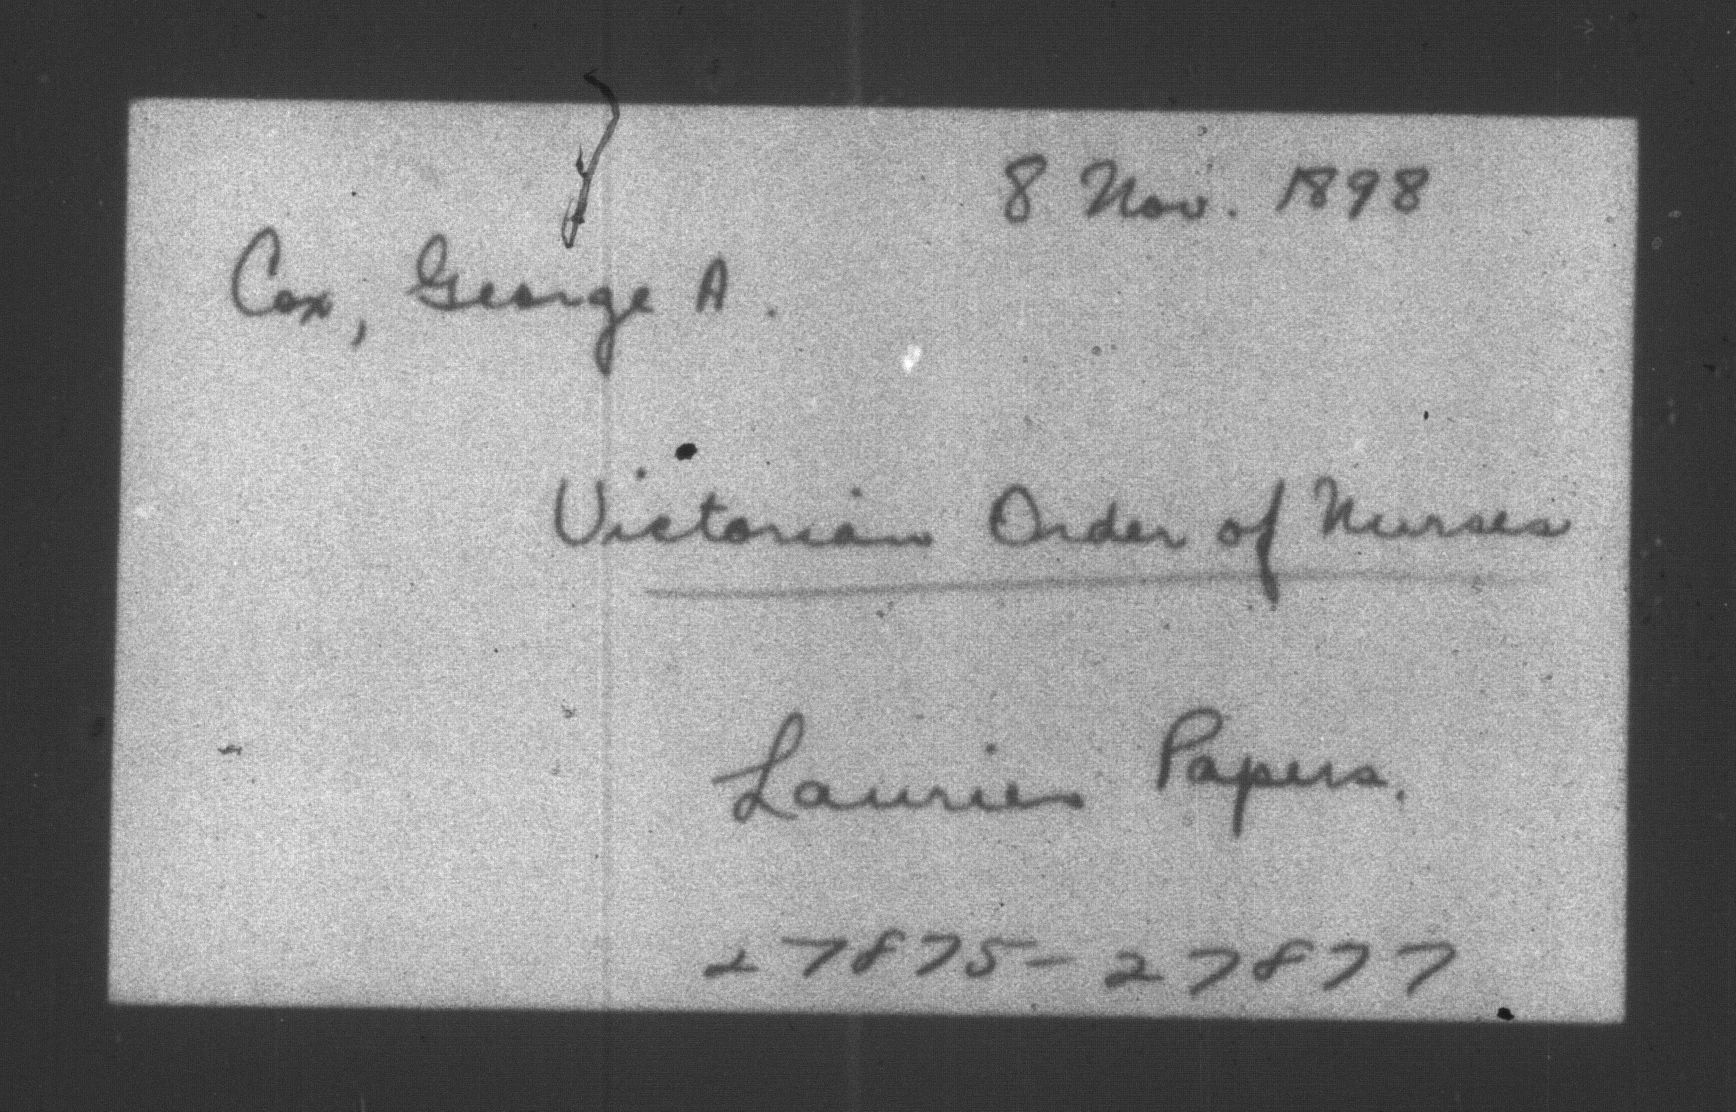 8 Nov. 1898
Cox, George A.
Victorian Order of Nurses
Laurier Papers.
27875-27877